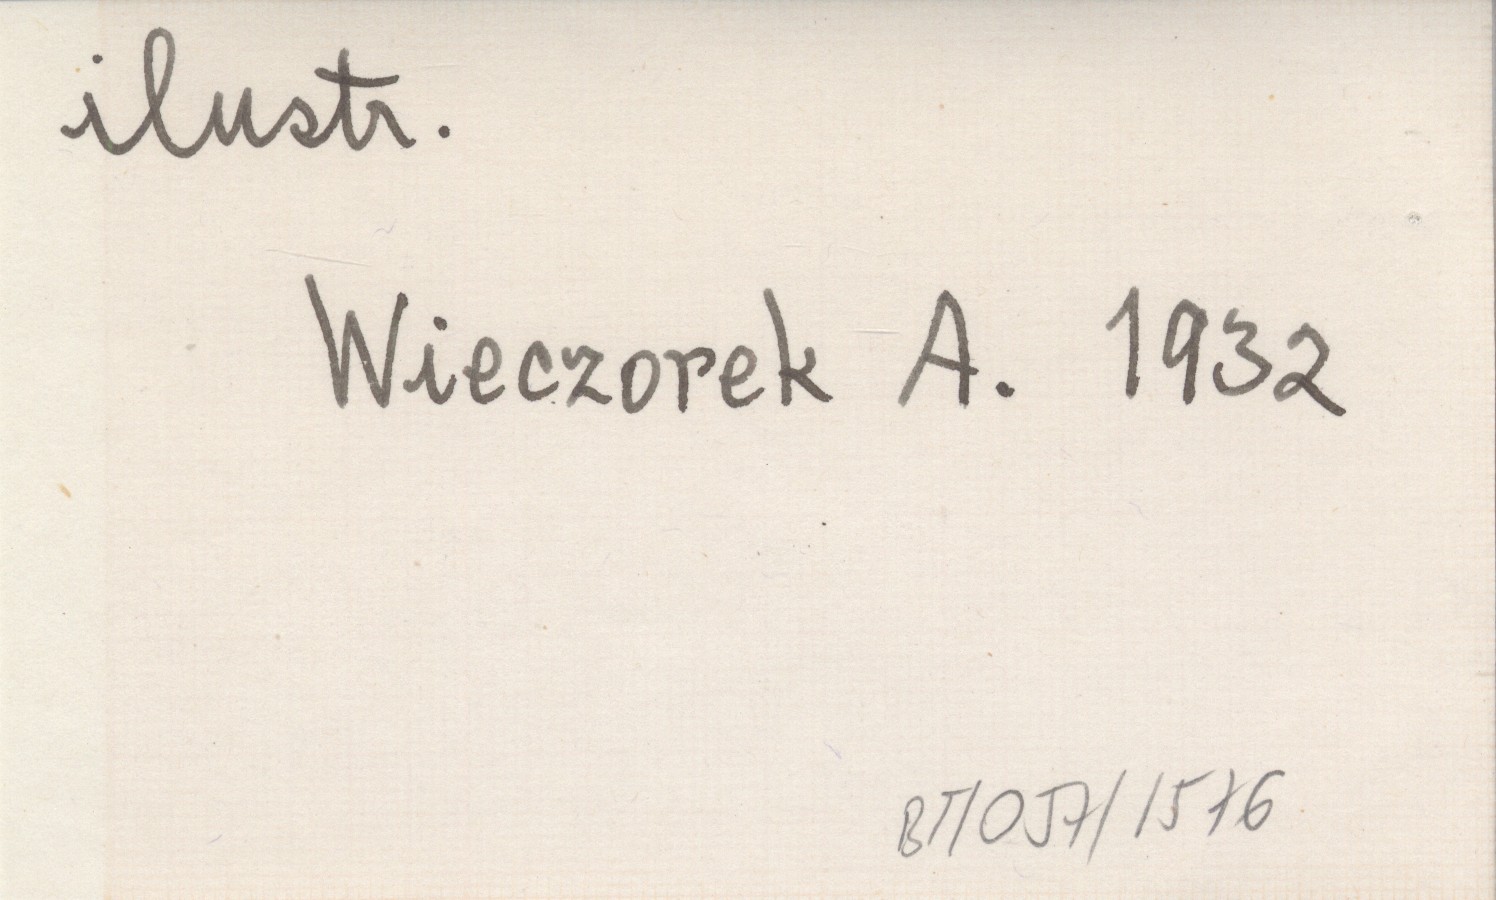 ilustr.
Wieczorek A. 1932
BT/057/1576